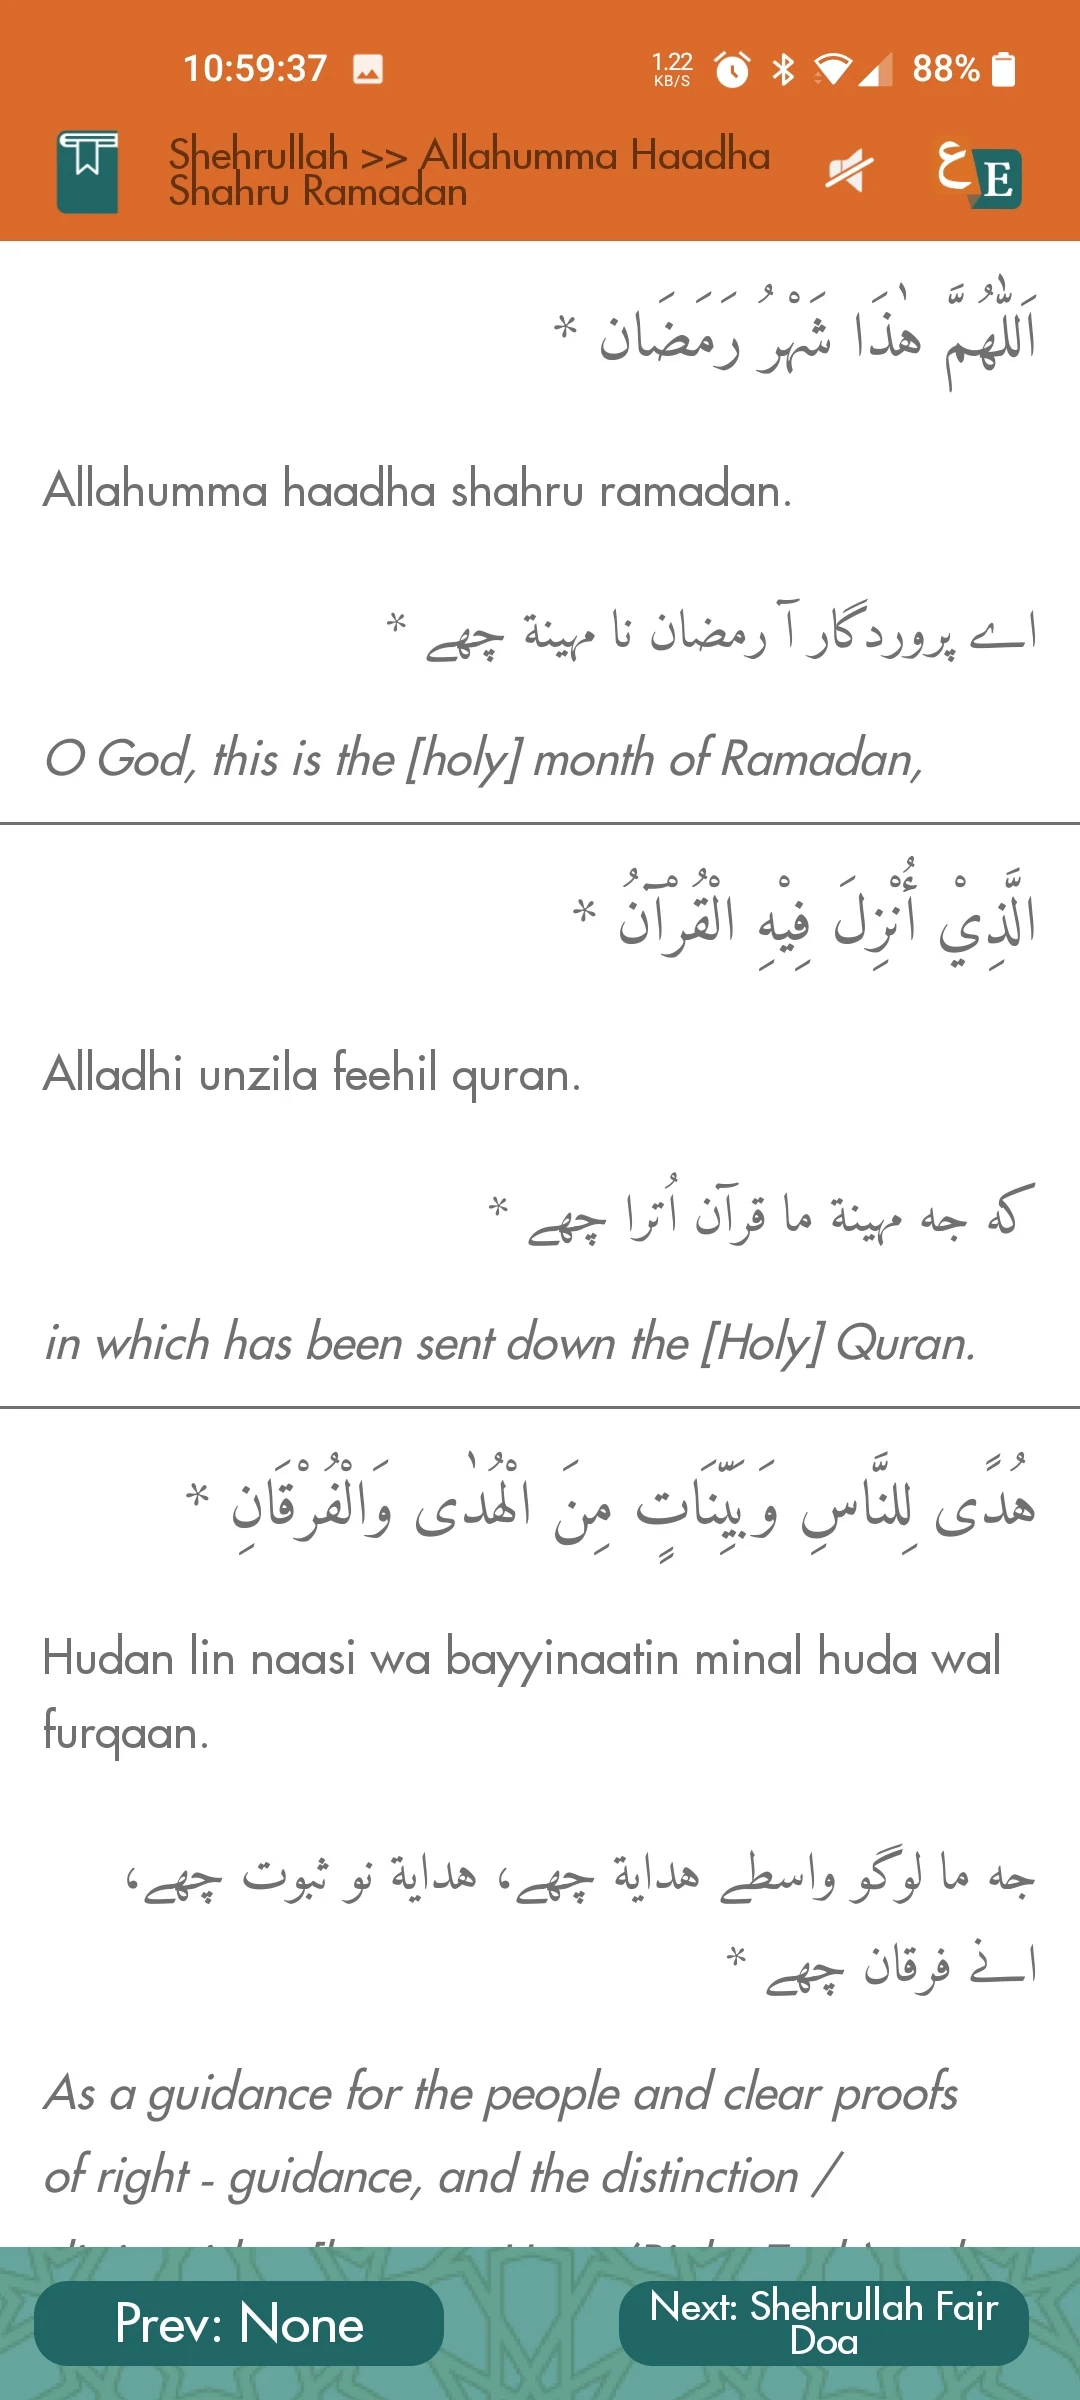 10:59:37
1.22
KB/S
88%
Shehrullah >> Allahumma Haadha
Shahru Ramadan
ع E
اَللّٰهُمَّ هٰذَا شَهْرُ رَمَضَان *
Allahumma haadha shahru ramadan.
اے پروردگار آ رمضان نا مهينة چھے *
O God, this is the [holy] month of Ramadan,
الَّذِيْ أُنْزِلَ فِيْهِ الْقُرْآنُ *
Alladhi unzila feehil quran.
كه جه مهينة ما قرآن اُترا چھے *
in which has been sent down the [Holy] Quran.
هُدًى لِلنَّاسِ وَبَيِّنَاتٍ مِنَ الْهُدٰى وَالْفُرْقَانِ *
Hudan lin naasi wa bayyinaatin minal huda wal
furqaan.
جه ما لوگو واسطے هداية چھے، هداية نو ثبوت چھے،
انے فرقان چھے *
As a guidance for the people and clear proofs
of right - guidance, and the distinction /
Prev: None
Next: Shehrullah Fajr
Doa